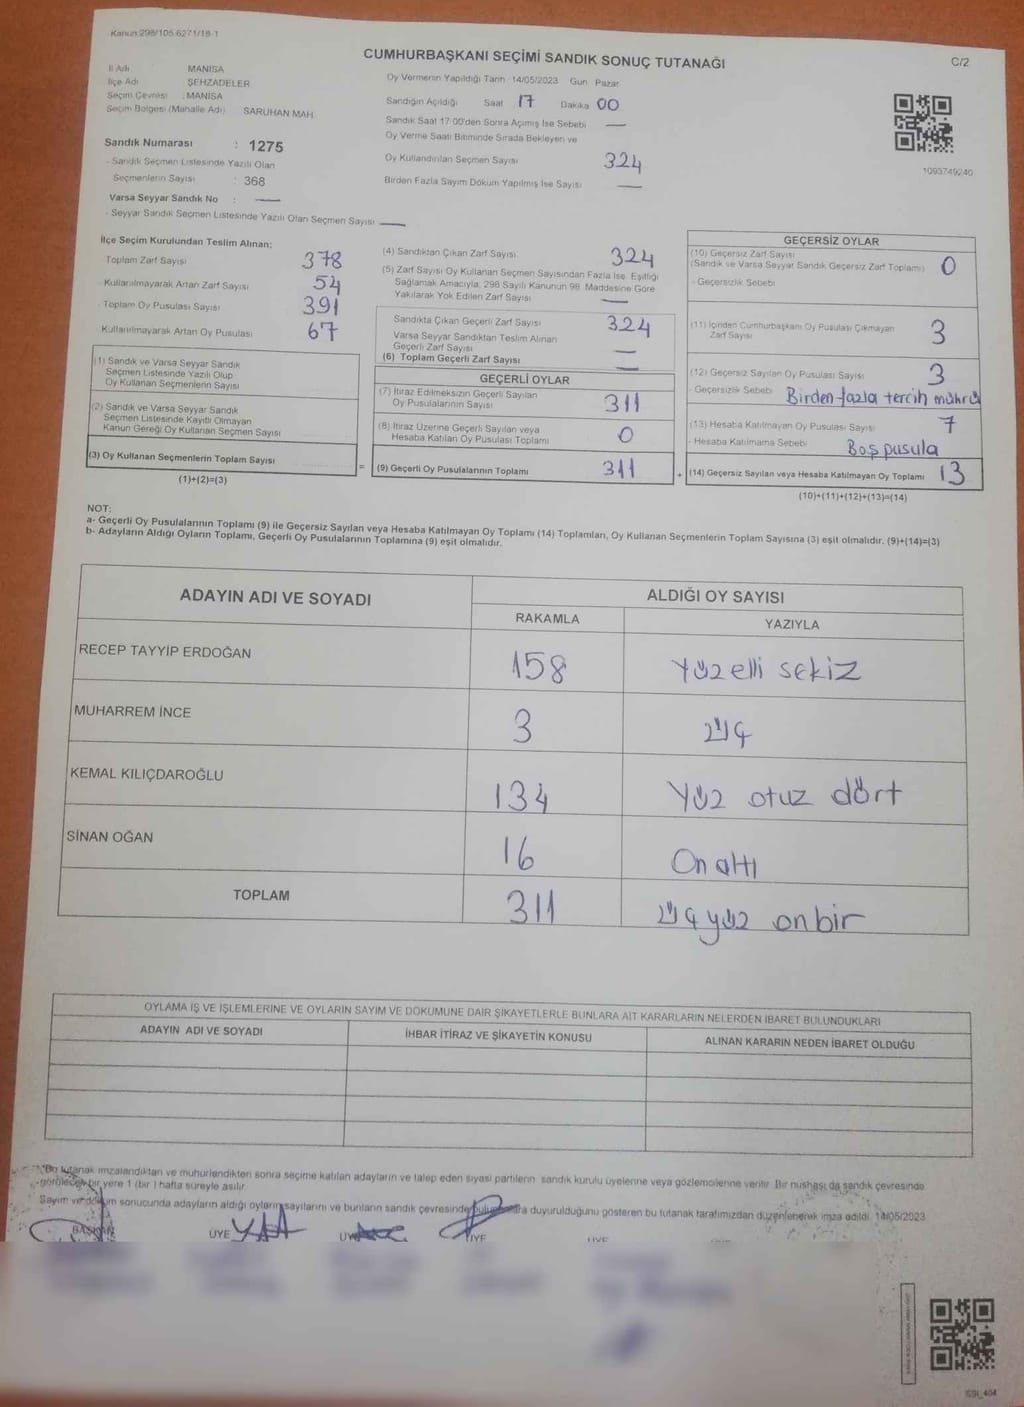 Kanun:298/105.6271/18-1
CUMHURBAŞKANI SEÇİMİ SANDIK SONUÇ TUTANAĞI
C/2
İl Adı MANİSA
İlçe Adı ŞEHZADELER
Seçim Çevresi MANİSA
Seçim Bölgesi (Mahalle Adı) SARUHAN MAH.
Sandık Numarası : 1275
- Sandık Seçmen Listesinde Yazılı Olan
Seçmenlerin Sayısı : 368
Varsa Seyyar Sandık No : —
- Seyyar Sandık Seçmen Listesinde Yazılı Olan Seçmen Sayısı —
Oy Vermenin Yapıldığı Tarih 14/05/2023 Gün Pazar
Sandığın Açıldığı Saat 17 Dakika 00
Sandık Saat 17:00'den Sonra Açılmış İse Sebebi —
Oy Verme Saati Bitiminde Sırada Bekleyen ve
Oy Kullandırılan Seçmen Sayısı 324
Birden Fazla Sayım Döküm Yapılmış İse Sayısı —
1093749240
İlçe Seçim Kurulundan Teslim Alınan;
- Toplam Zarf Sayısı 378
- Kullanılmayarak Artan Zarf Sayısı 54
- Toplam Oy Pusulası Sayısı 391
- Kullanılmayarak Artan Oy Pusulası 67
(1) Sandık ve Varsa Seyyar Sandık
Seçmen Listesinde Yazılı Olup
Oy Kullanan Seçmenlerin Sayısı
(2) Sandık ve Varsa Seyyar Sandık
Seçmen Listesinde Kayıtlı Olmayan
Kanun Gereği Oy Kullanan Seçmen Sayısı
(3) Oy Kullanan Seçmenlerin Toplam Sayısı
(1)+(2)=(3)
=
(4) Sandıktan Çıkan Zarf Sayısı 324
(5) Zarf Sayısı Oy Kullanan Seçmen Sayısından Fazla İse, Eşitliği
Sağlamak Amacıyla, 298 Sayılı Kanunun 98. Maddesine Göre
Yakılarak Yok Edilen Zarf Sayısı —
Sandıkta Çıkan Geçerli Zarf Sayısı 324
Varsa Seyyar Sandıktan Teslim Alınan
Geçerli Zarf Sayısı —
(6) Toplam Geçerli Zarf Sayısı —
GEÇERLİ OYLAR
(7) İtiraz Edilmeksizin Geçerli Sayılan
Oy Pusulalarının Sayısı 311
(8) İtiraz Üzerine Geçerli Sayılan veya
Hesaba Katılan Oy Pusulası Toplamı 0
(9) Geçerli Oy Pusulalarının Toplamı 311
+
GEÇERSİZ OYLAR
(10) Geçersiz Zarf Sayısı
(Sandık ve Varsa Seyyar Sandık Geçersiz Zarf Toplamı) 0
- Geçersizlik Sebebi
(11) İçinden Cumhurbaşkanı Oy Pusulası Çıkmayan
Zarf Sayısı 3
(12) Geçersiz Sayılan Oy Pusulası Sayısı 3
- Geçersizlik Sebebi Birden fazla tercih mührü
(13) Hesaba Katılmayan Oy Pusulası Sayısı 7
- Hesaba Katılmama Sebebi Boş pusula
(14) Geçersiz Sayılan veya Hesaba Katılmayan Oy Toplamı 13
(10)+(11)+(12)+(13)=(14)
NOT:
a- Geçerli Oy Pusulalarının Toplamı (9) ile Geçersiz Sayılan veya Hesaba Katılmayan Oy Toplamı (14) Toplamları, Oy Kullanan Seçmenlerin Toplam Sayısına (3) eşit olmalıdır. (9)+(14)=(3)
b- Adayların Aldığı Oyların Toplamı, Geçerli Oy Pusulalarının Toplamına (9) eşit olmalıdır.
ADAYIN ADI VE SOYADI ALDIĞI OY SAYISI
RAKAMLA YAZIYLA
RECEP TAYYİP ERDOĞAN 158 Yüz elli sekiz
MUHARREM İNCE 3 üç
KEMAL KILIÇDAROĞLU 134 Yüz otuz dört
SİNAN OĞAN 16 On altı
TOPLAM 311 üç yüz on bir
OYLAMA İŞ VE İŞLEMLERİNE VE OYLARIN SAYIM VE DÖKÜMÜNE DAİR ŞİKAYETLERLE BUNLARA AİT KARARLARIN NELERDEN İBARET BULUNDUKLARI
ADAYIN ADI VE SOYADI İHBAR İTİRAZ VE ŞİKAYETİN KONUSU ALINAN KARARIN NEDEN İBARET OLDUĞU
Bu tutanak imzalandıktan ve mühürlendikten sonra seçime katılan adayların ve talep eden siyasi partilerin sandık kurulu üyelerine veya gözlemcilerine verilir. Bir nushası da sandık çevresinde
görülecek bir yere 1 (bir ) hafta süreyle asılır.
Sayım ve döküm sonucunda adayların aldığı oyların sayılarını ve bunların sandık çevresinde duyurulduğunu gösteren bu tutanak tarafımızdan düzenlenerek imza edildi. 14/05/2023
BAŞKAN ÜYE ÜYE ÜYE ÜYE
SSI_404